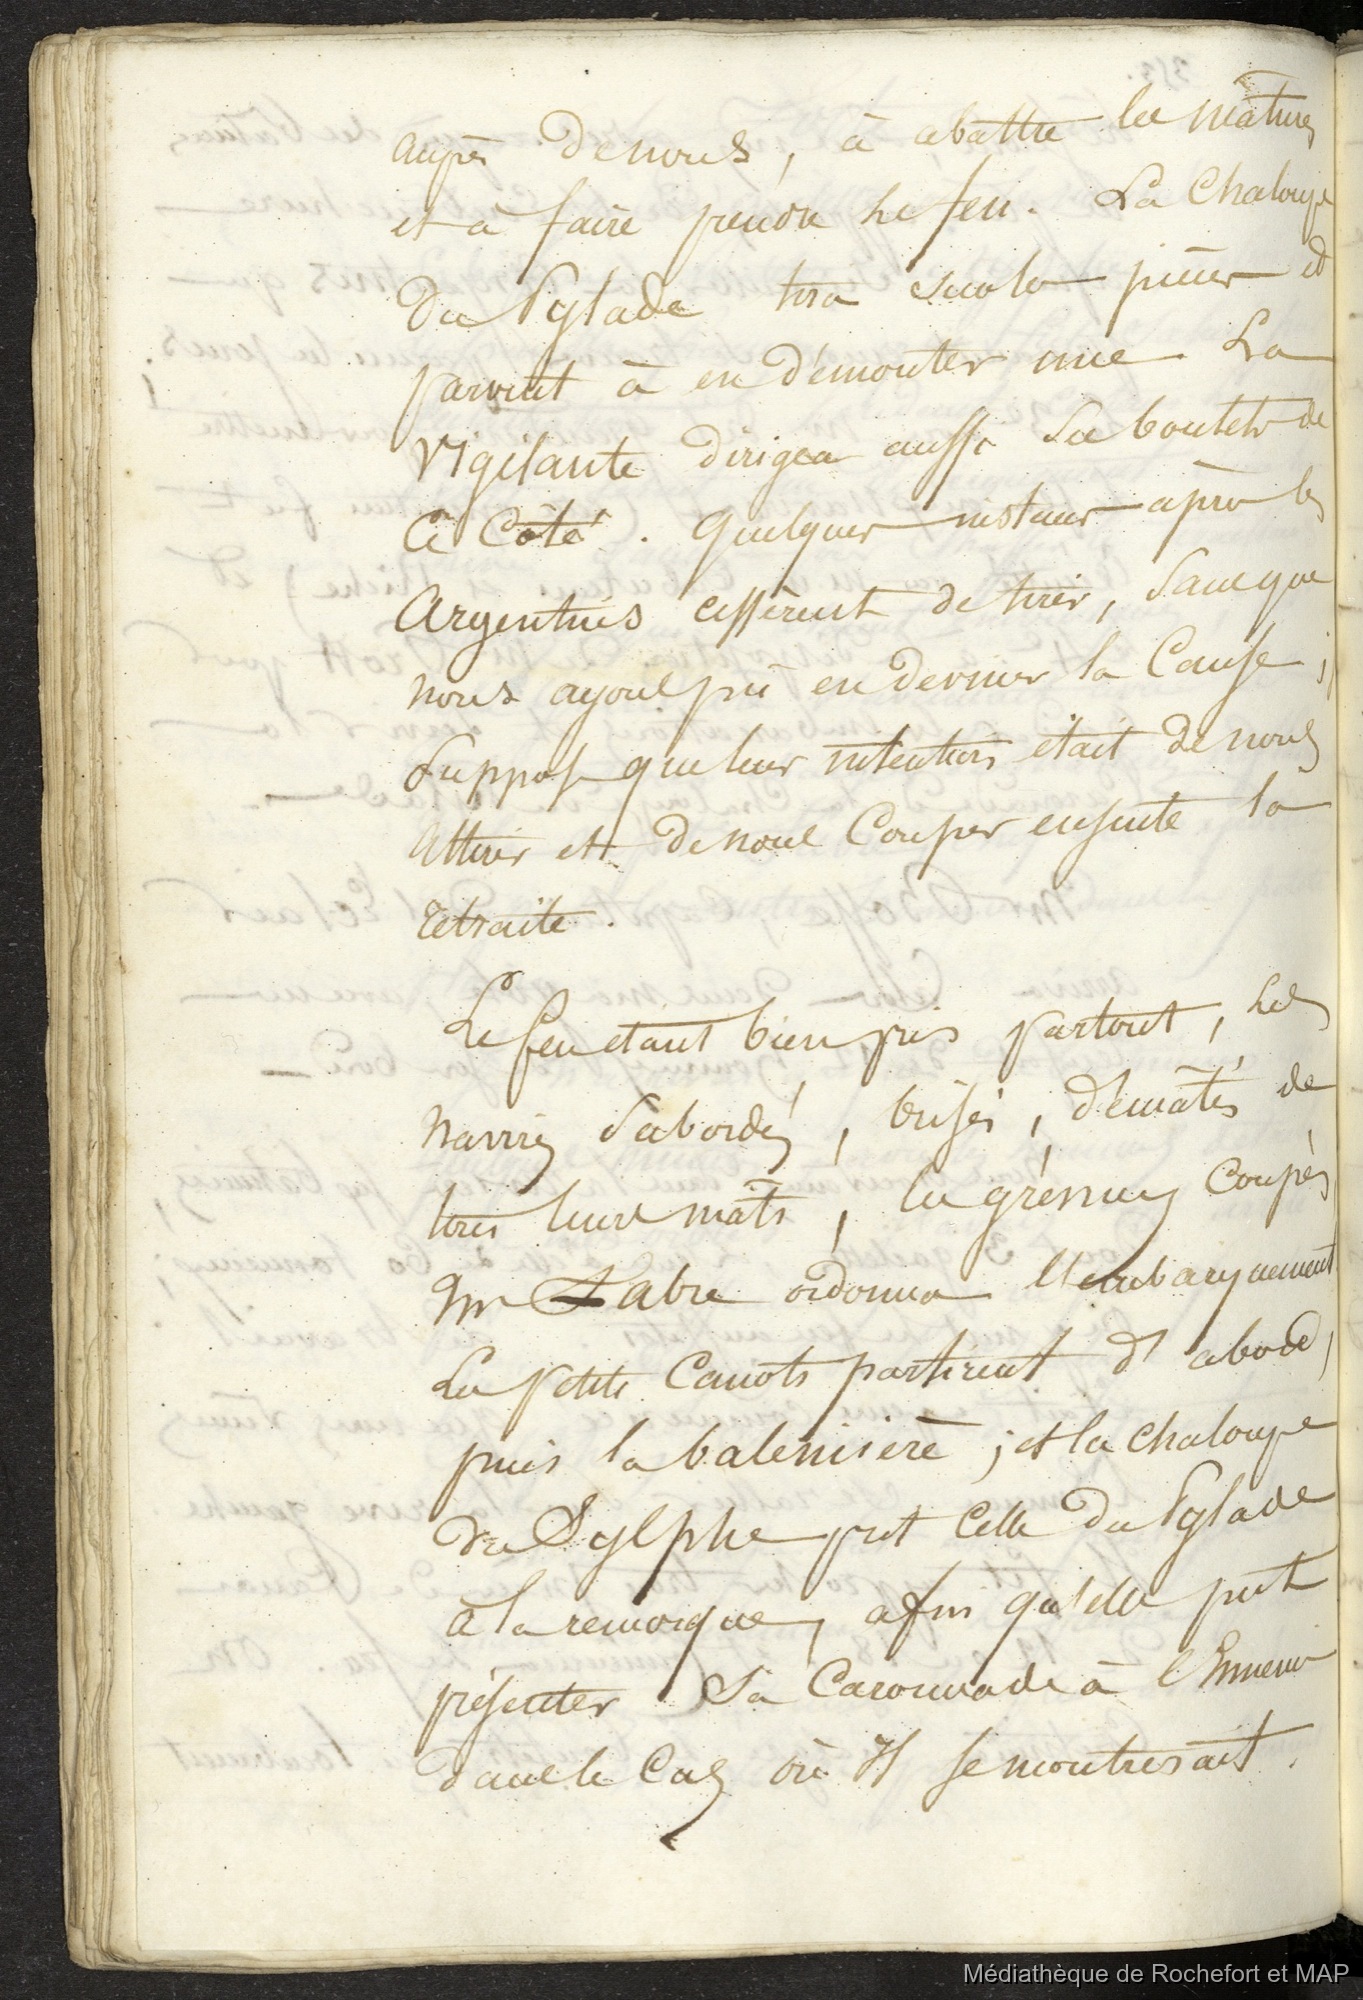 auprès de nous, à abattre les mâtures
et à faire prendre le feu. La Chaloupe
du Pylade tira sur les pièces et
parvint à en démonter une. La
Vigilante dirigea aussi ses boulets de
ce Côté. quelques instans après les
Argentins cessèrent de tirer, sans que
nous ayons pû en deviner la Cause ; j
suppose que leur intention était de nous
attirer et de nous Couper ensuite la
retraite.
Le feu étant bien pris partout, les
navires sabordés, brisés, démâtés de
tous leurs mâts, les grémens Coupés
Mr Fabre ordonna l'embarquement
Les petits Canots partirent d'abord,
puis la baleinière ; et la chaloupe
du Sylphe prit celle du Pylade
à la remorque, afin qu'elle put
présenter sa Caronnade à l'Ennemi
dans le Cas où Il se montrerait.
Médiathèque de Rochefort et MAP